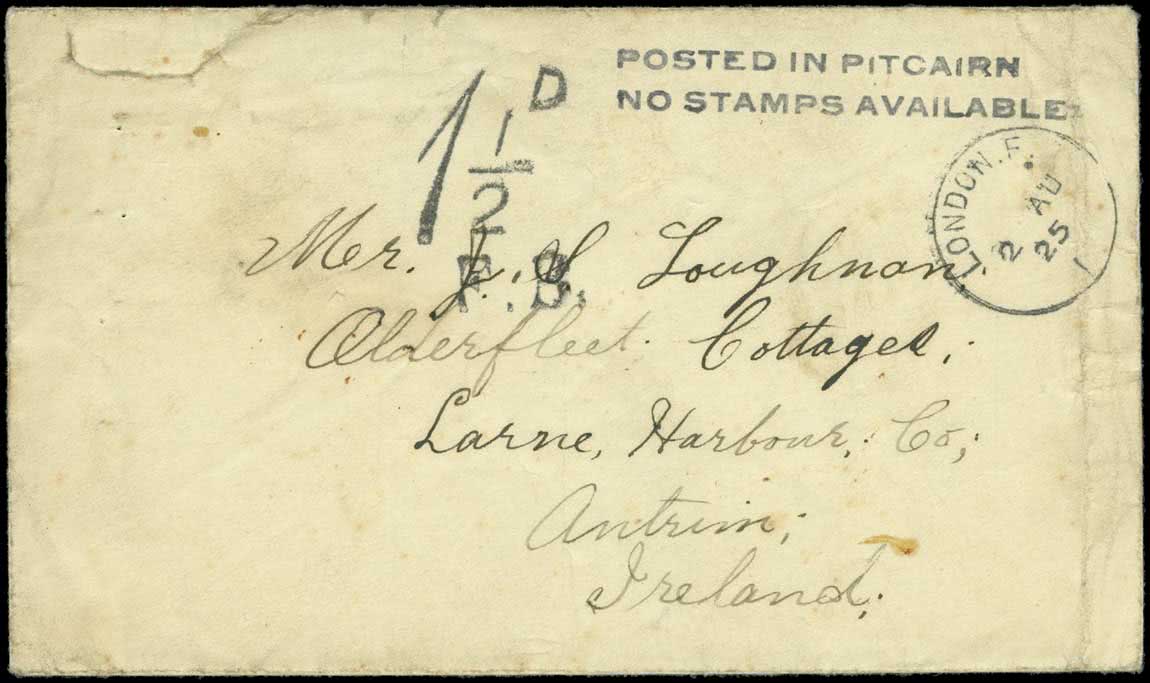 POSTED IN PITCAIRN
NO STAMPS AVAILABLE
1 1/2 D
F.B.
LONDON. F.
2 AU
25
Mer. J. S. Loughnan.
Olderfleet. Cottages,.
Larne, Harbour,. Co,.
Antrim;
Ireland;